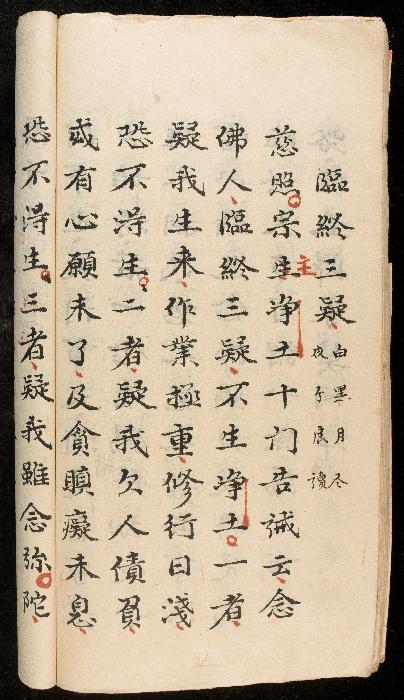 臨終三疑 白黑月尽
夜分展讀
慈照宗生净土十门告诫云念
主
佛人臨終三疑不生净土一者
疑我生来作業極重修行日淺
恐不淂生二者疑我欠人債負
或有心願未了及貪瞋癡未息
恐不淂生三者疑我雖念弥陀